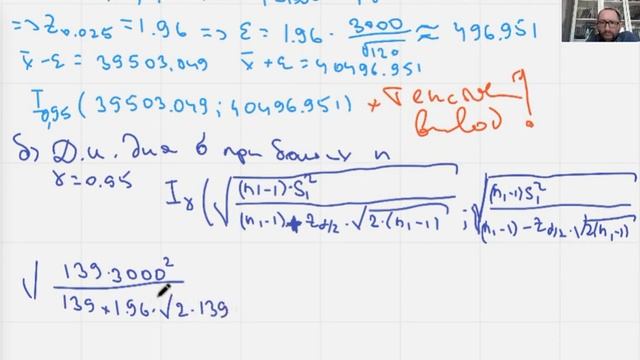 => Z₀.₀₂₅ = 1.96 => ε = 1.96 · 3000/√120 ≈ 496.951
x̄ - ε = 39503.049 x̄ + ε = 40496.951
I₀,₉₅ (39503.049; 40496.951) + Текстов
вывод!
б) Д.и. для б при больших n
γ = 0.95 Iᵧ (√((n₁-1)·S₁²/((n₁-1)+Z_α/2·√(2·(n₁-1)))) ; √((n₁-1)S₁²/((n₁-1)-Z_α/2·√(2(n₁-1))))
√ 139·3000²/(139+1.96·√2·139)